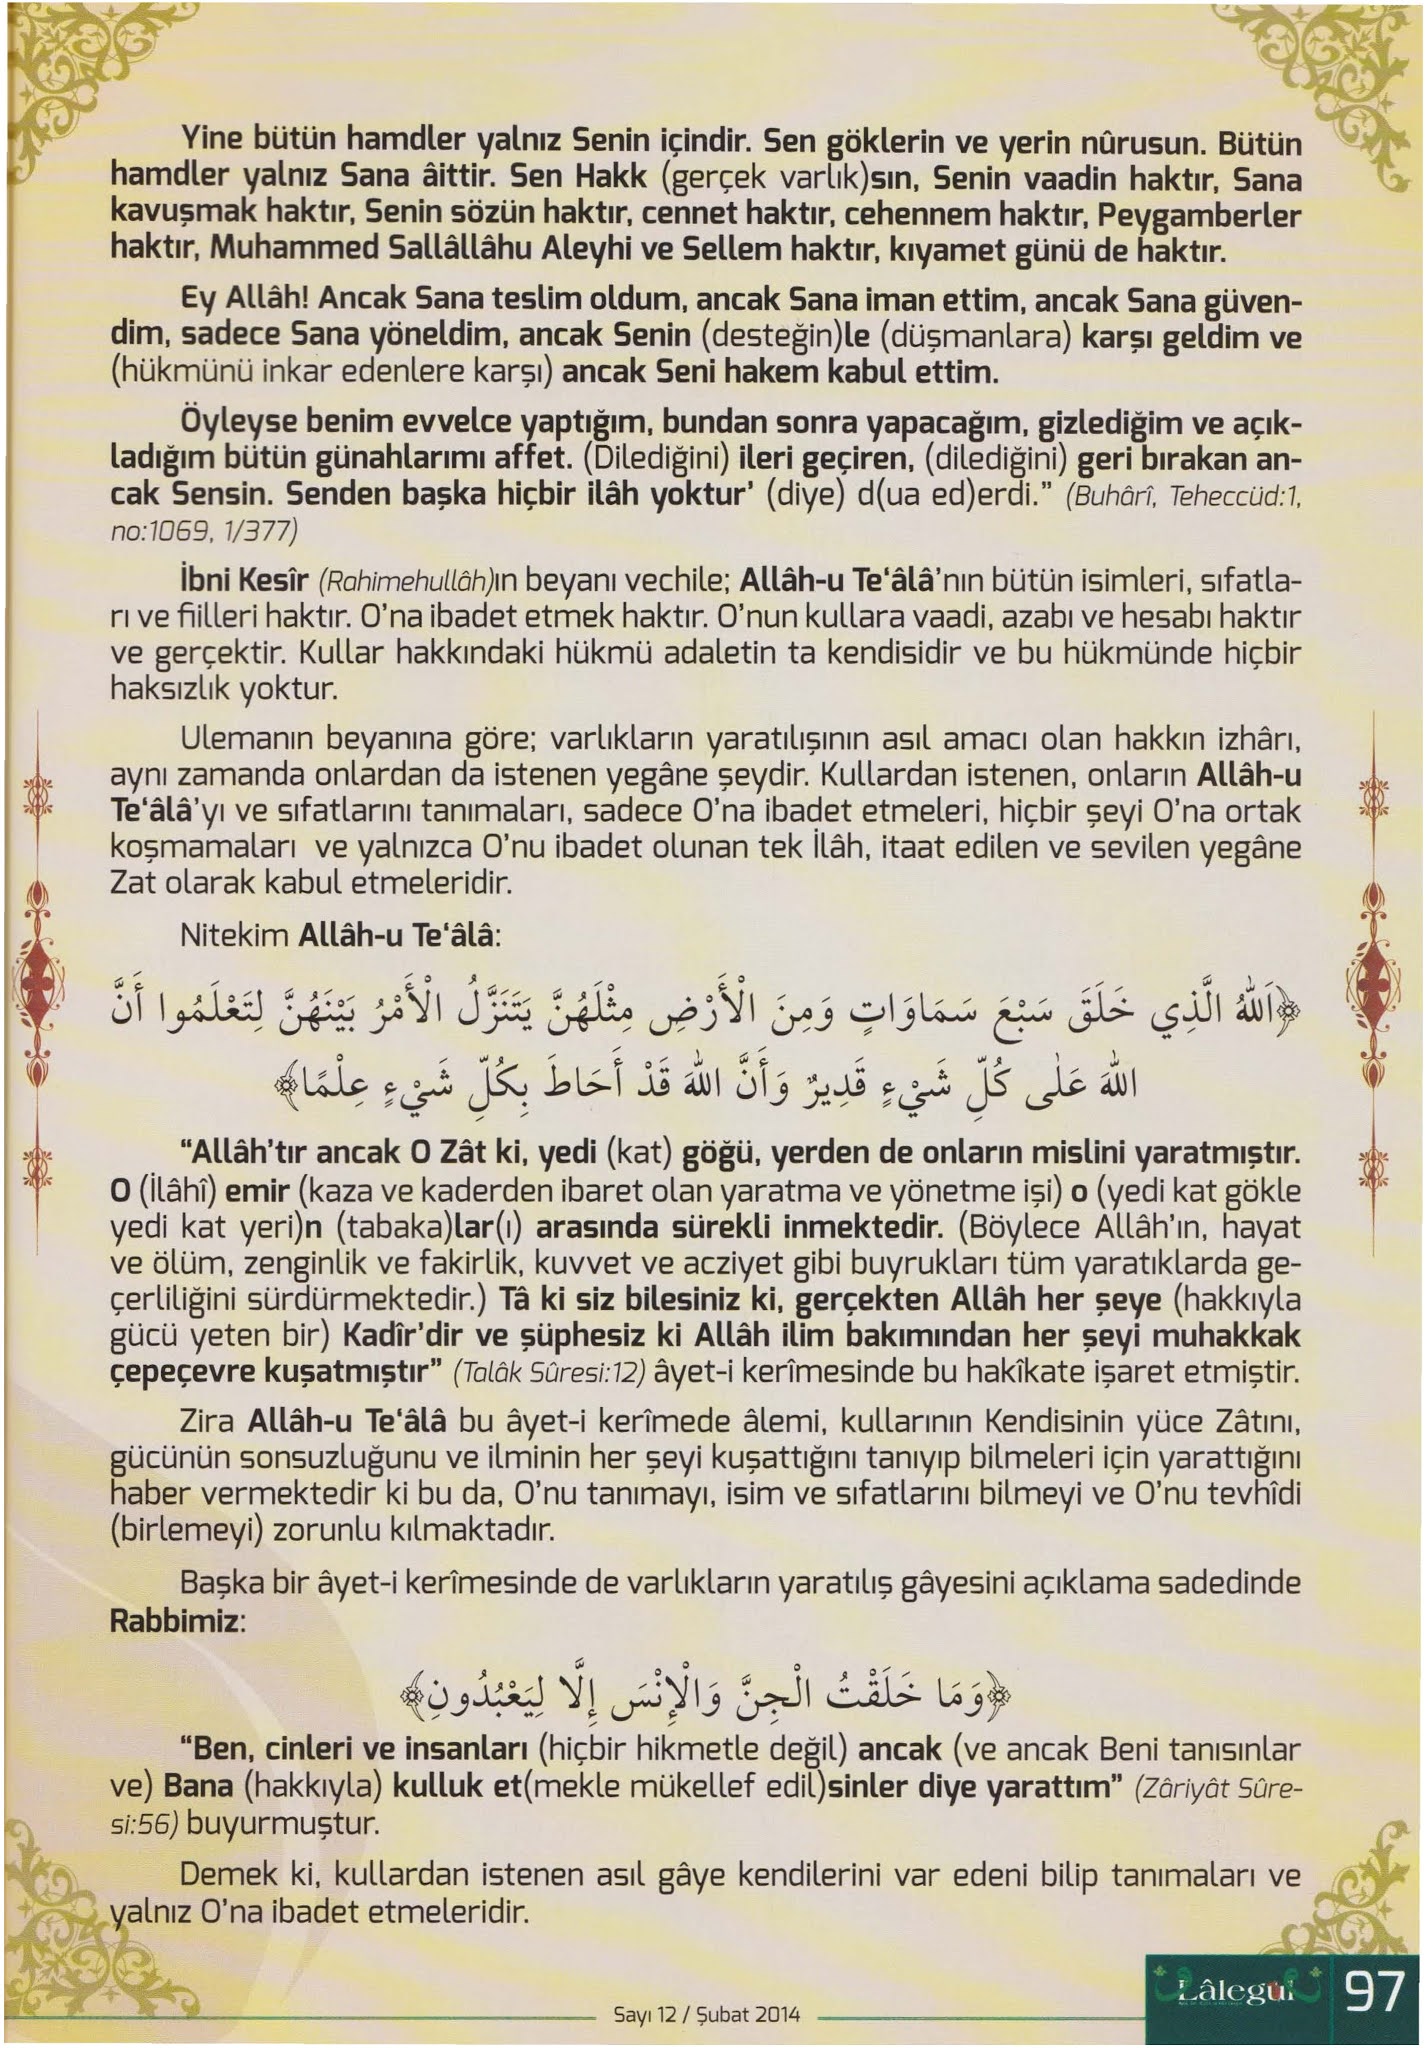 Yine bütün hamdler yalnız Senin içindir. Sen göklerin ve yerin nûrusun. Bütün
hamdler yalnız Sana âittir. Sen Hakk (gerçek varlık)sın, Senin vaadin haktır, Sana
kavuşmak haktır, Senin sözün haktır, cennet haktır, cehennem haktır, Peygamberler
haktır, Muhammed Sallâllâhu Aleyhi ve Sellem haktır, kıyamet günü de haktır.
Ey Allâh! Ancak Sana teslim oldum, ancak Sana iman ettim, ancak Sana güven-
dim, sadece Sana yöneldim, ancak Senin (desteğin)le (düşmanlara) karşı geldim ve
(hükmünü inkar edenlere karşı) ancak Seni hakem kabul ettim.
Öyleyse benim evvelce yaptığım, bundan sonra yapacağım, gizlediğim ve açık-
ladığım bütün günahlarımı affet. (Dilediğini) ileri geçiren, (dilediğini) geri bırakan an-
cak Sensin. Senden başka hiçbir ilâh yoktur’ (diye) d(ua ed)erdi.” (Buhârî, Teheccüd:1,
no:1069, 1/377)
İbni Kesîr (Rahimehullâh)ın beyanı vechile; Allâh-u Te‘âlâ’nın bütün isimleri, sıfatla-
rı ve fiilleri haktır. O’na ibadet etmek haktır. O’nun kullara vaadi, azabı ve hesabı haktır
ve gerçektir. Kullar hakkındaki hükmü adaletin ta kendisidir ve bu hükmünde hiçbir
haksızlık yoktur.
Ulemanın beyanına göre; varlıkların yaratılışının asıl amacı olan hakkın izhârı,
aynı zamanda onlardan da istenen yegâne şeydir. Kullardan istenen, onların Allâh-u
Te‘âlâ’yı ve sıfatlarını tanımaları, sadece O’na ibadet etmeleri, hiçbir şeyi O’na ortak
koşmamaları ve yalnızca O’nu ibadet olunan tek İlâh, itaat edilen ve sevilen yegâne
Zat olarak kabul etmeleridir.
Nitekim Allâh-u Te‘âlâ:
﴿اَللهُ الَّذِي خَلَقَ سَبْعَ سَمَاوَاتٍ وَمِنَ الْأَرْضِ مِثْلَهُنَّ يَتَنَزَّلُ الْأَمْرُ بَيْنَهُنَّ لِتَعْلَمُوا أَنَّ
اللهَ عَلٰى كُلِّ شَيْءٍ قَدِيرٌ وَأَنَّ اللهَ قَدْ أَحَاطَ بِكُلِّ شَيْءٍ عِلْمًا﴾
“Allâh’tır ancak O Zât ki, yedi (kat) göğü, yerden de onların mislini yaratmıştır.
O (İlâhî) emir (kaza ve kaderden ibaret olan yaratma ve yönetme işi) o (yedi kat gökle
yedi kat yeri)n (tabaka)lar(ı) arasında sürekli inmektedir. (Böylece Allâh’ın, hayat
ve ölüm, zenginlik ve fakirlik, kuvvet ve acziyet gibi buyrukları tüm yaratıklarda ge-
çerliliğini sürdürmektedir.) Tâ ki siz bilesiniz ki, gerçekten Allâh her şeye (hakkıyla
gücü yeten bir) Kadîr’dir ve şüphesiz ki Allâh ilim bakımından her şeyi muhakkak
çepeçevre kuşatmıştır” (Talâk Sûresi:12) âyet-i kerîmesinde bu hakîkate işaret etmiştir.
Zira Allâh-u Te‘âlâ bu âyet-i kerîmede âlemi, kullarının Kendisinin yüce Zâtını,
gücünün sonsuzluğunu ve ilminin her şeyi kuşattığını tanıyıp bilmeleri için yarattığını
haber vermektedir ki bu da, O’nu tanımayı, isim ve sıfatlarını bilmeyi ve O’nu tevhîdi
(birlemeyi) zorunlu kılmaktadır.
Başka bir âyet-i kerîmesinde de varlıkların yaratılış gâyesini açıklama sadedinde
Rabbimiz:
﴿وَمَا خَلَقْتُ الْجِنَّ وَالْإِنْسَ إِلَّا لِيَعْبُدُونِ﴾
“Ben, cinleri ve insanları (hiçbir hikmetle değil) ancak (ve ancak Beni tanısınlar
ve) Bana (hakkıyla) kulluk et(mekle mükellef edil)sinler diye yarattım” (Zâriyât Sûre-
si:56) buyurmuştur.
Demek ki, kullardan istenen asıl gâye kendilerini var edeni bilip tanımaları ve
yalnız O’na ibadet etmeleridir.
Sayı 12 / Şubat 2014
Lâlegül
97